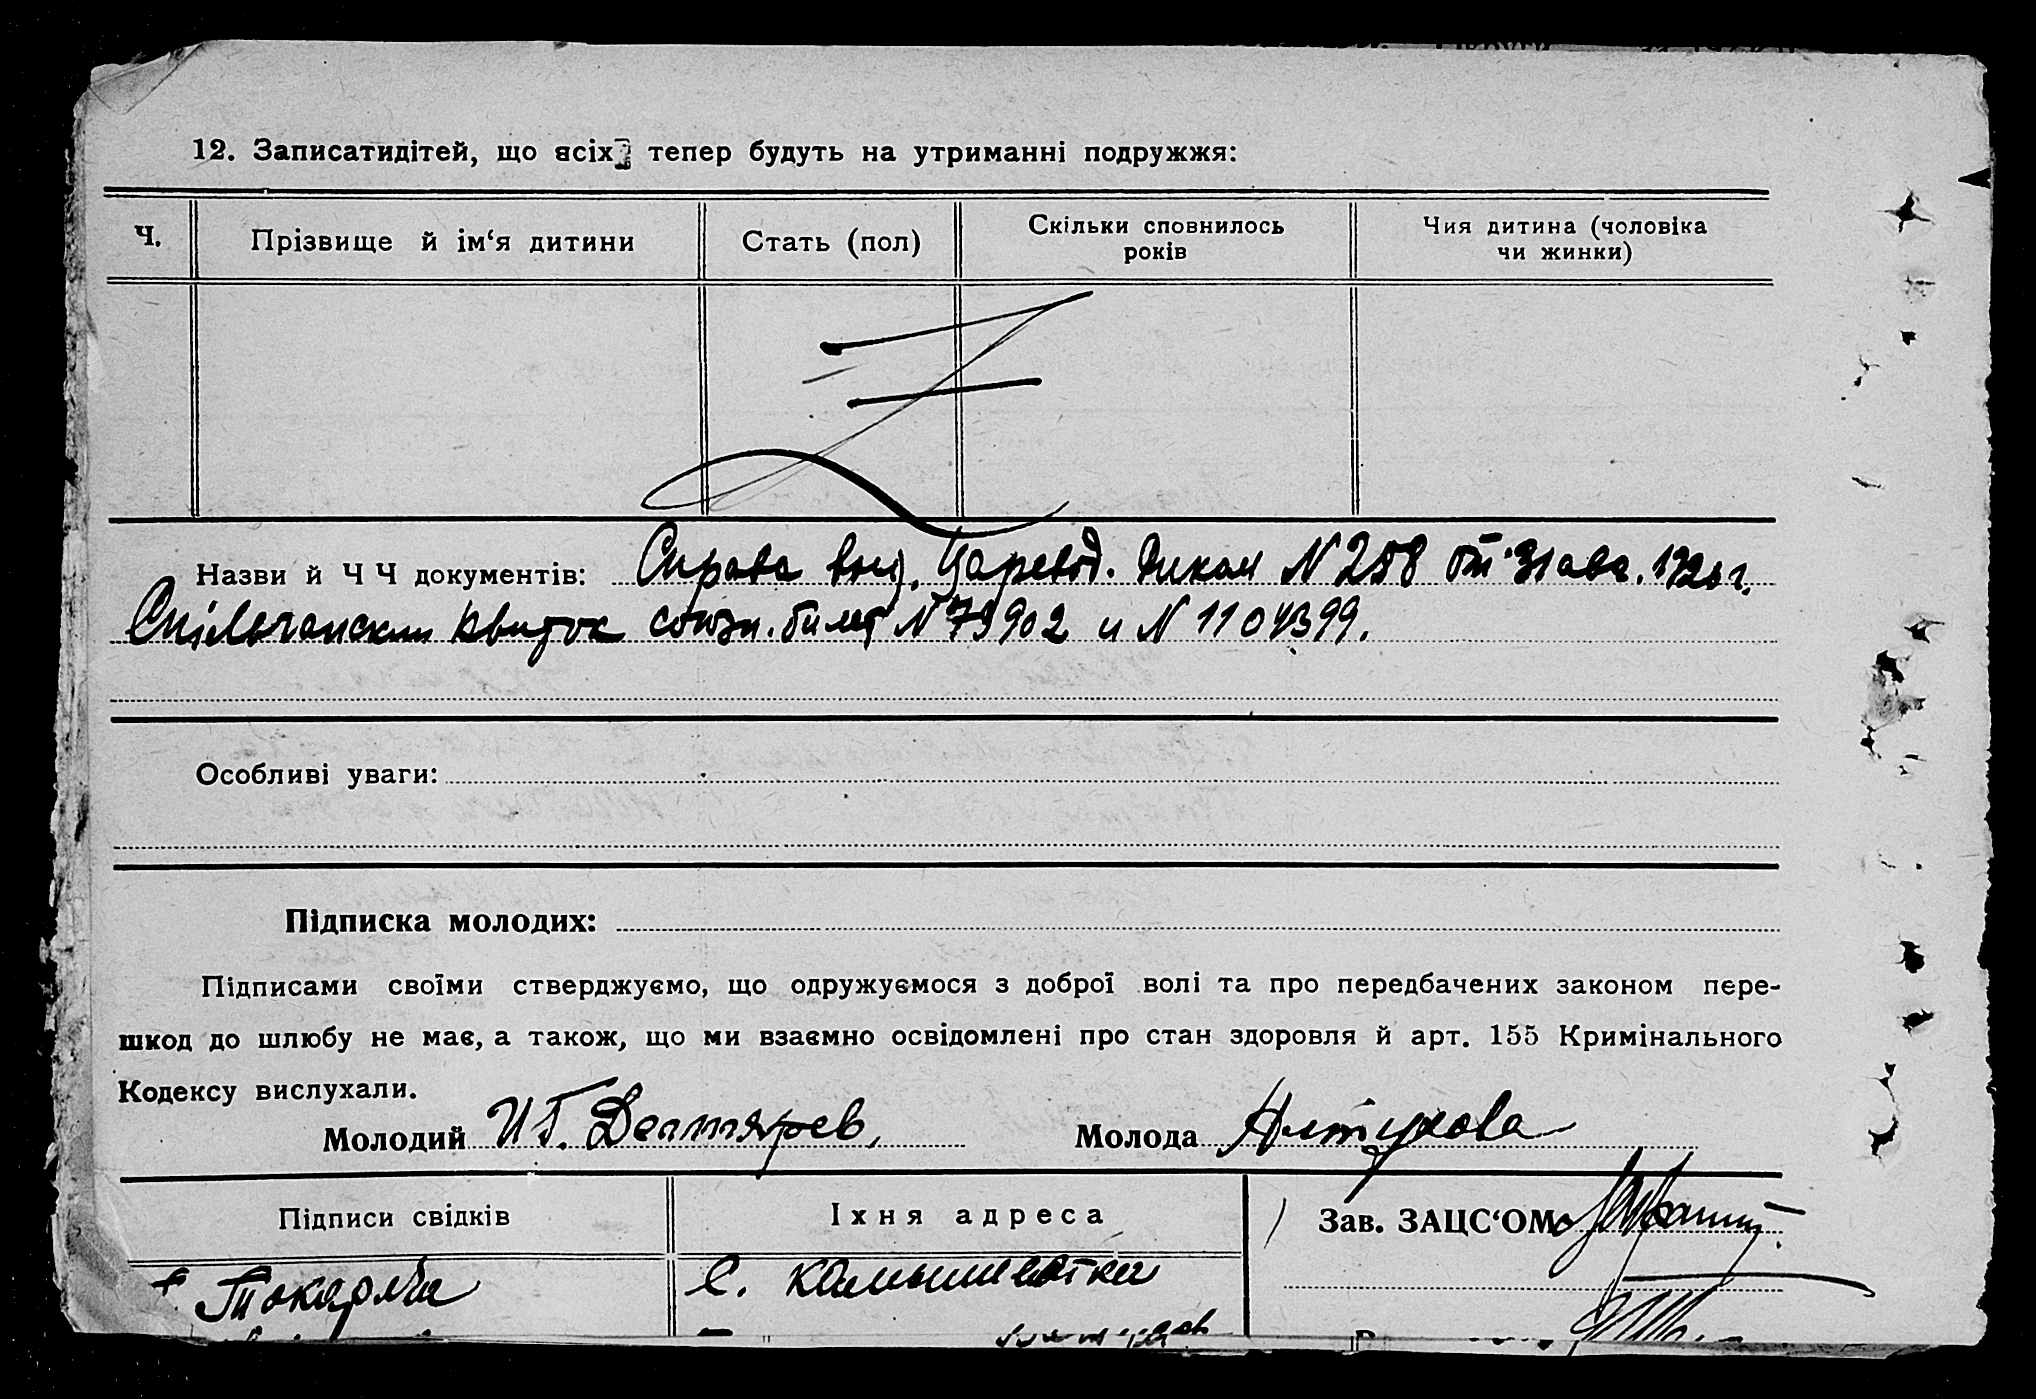 12. Записатидітей, що всіх тепер будуть на утриманні подружжя:
Ч.
Прізвище й ім‘я дитини
Стать (пол)
Скільки сповнилось
років
Чия дитина (чоловіка
чи жинки)
Назви й Ч Ч документів: Справа выд. Царевод. N 258 от 31 авг. г.
Спільчанский квиток союзн. билет N 79902 и N 1104399.
Особливі уваги:
Підписка молодих:
Підписами своїми стверджуємо, що одружуємося з доброї волі та про передбачених законом пере-
шкод до шлюбу не має, а також, що ми взаємно освідомлені про стан здоровля й арт. 155 Кримінального
Кодексу вислухали.
Молодий И Г. Дегтярев,
Молода Алтухова
Підписи свідків
Їхня адреса
Зав. ЗАЦС‘ОМ
Токарева
с. Камышеватка